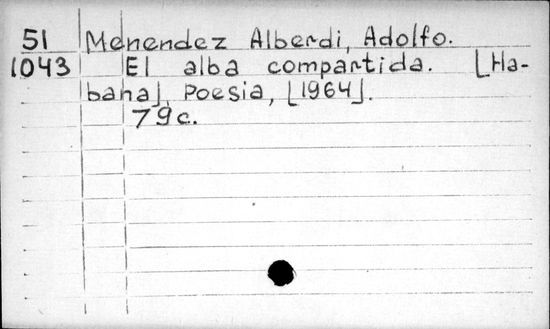 51 Menendez Alberdi, Adolfo.
1043 El alba compartida. [Ha-
bana], Poesia, [1964].
79 c.